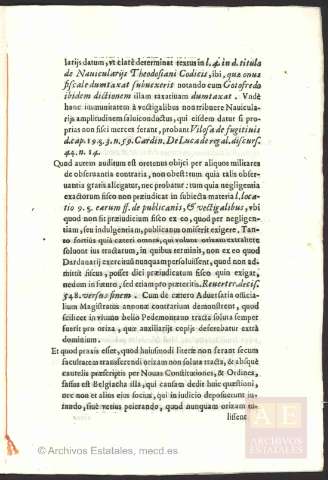 larijs datum, vt clarè determinat textus in l. 4. in d. titulo
de Nauicularijs Theodosiani Codicis, ibi, quæ onus
fiscale dumtaxat subuexerit notando cum Gotofredo
ibidem dictionem illam taxatiuam dumtaxat. Vndè
hanc immunitatem à vectigalibus non tribuere Nauicula-
rijs amplitudinem saluiconductus, qui eisdem datur si pro-
prias non fisci merces ferant, probant Vilosa de fugitiuis
d. cap. 19. § 3. n. 59. Cardin. De Luca de regal. discurs.
44. n. 14.
Quod autem auditum est oretenus objici per aliquos milita
de obseruantia contraria, non obest: tum quia talis obser-
uantia gratis allegatur, nec probatur: tum quia negligentia
exactorum fisco non præiudicat in subiecta materia l. loca-
tio 9. 5. earum ff. de publicanis, & vectigalibus, vbi
quod non fit præiudicium fisco ex eo, quod per negligen-
tiam, seu indulgentiam, publicanus omiserit exigere, Tan-
to fortiùs quia cæteri omnes, qui
soluunt ius tractarum, in quibus terminis, non ex eo quod
Dardanarij exercituũ nunquam persoluissent, quod non ad-
mittit fiscus, posset dici præiudicatum fisco quin exigat,
nedum in futuro, sed etiam pro præteritis. Reuerter. decis.
548. versus finem. Cum de cætero Aduersatia officia-
lium Magistratus annonæ contrarium demonstrent, quod
scilicet in vltimo bello Pedemontano tracta soluta semper
fuerit pro oriza, quæ auxiliarijs copijs deserebatur extrà
dominium.
Et quod praxis esset, quod huiusmodi literæ non ferant secum
facultatem transferendi orizam non soluta tracta, & absquè
cautelis præscriptis per Nouas Constitutiones, & Ordines,
fassus est Belgiacha illa, qui causam dedit huic quæstioni,
nec non et alius eius socius, qui in iudicio deposuerunt ju-
rando, siuè veriùs peierando, quod nunquam orizam tu-
lissent
AE
ARCHIVOS
ESTATALES
© Archivos Estatales, mecd.es